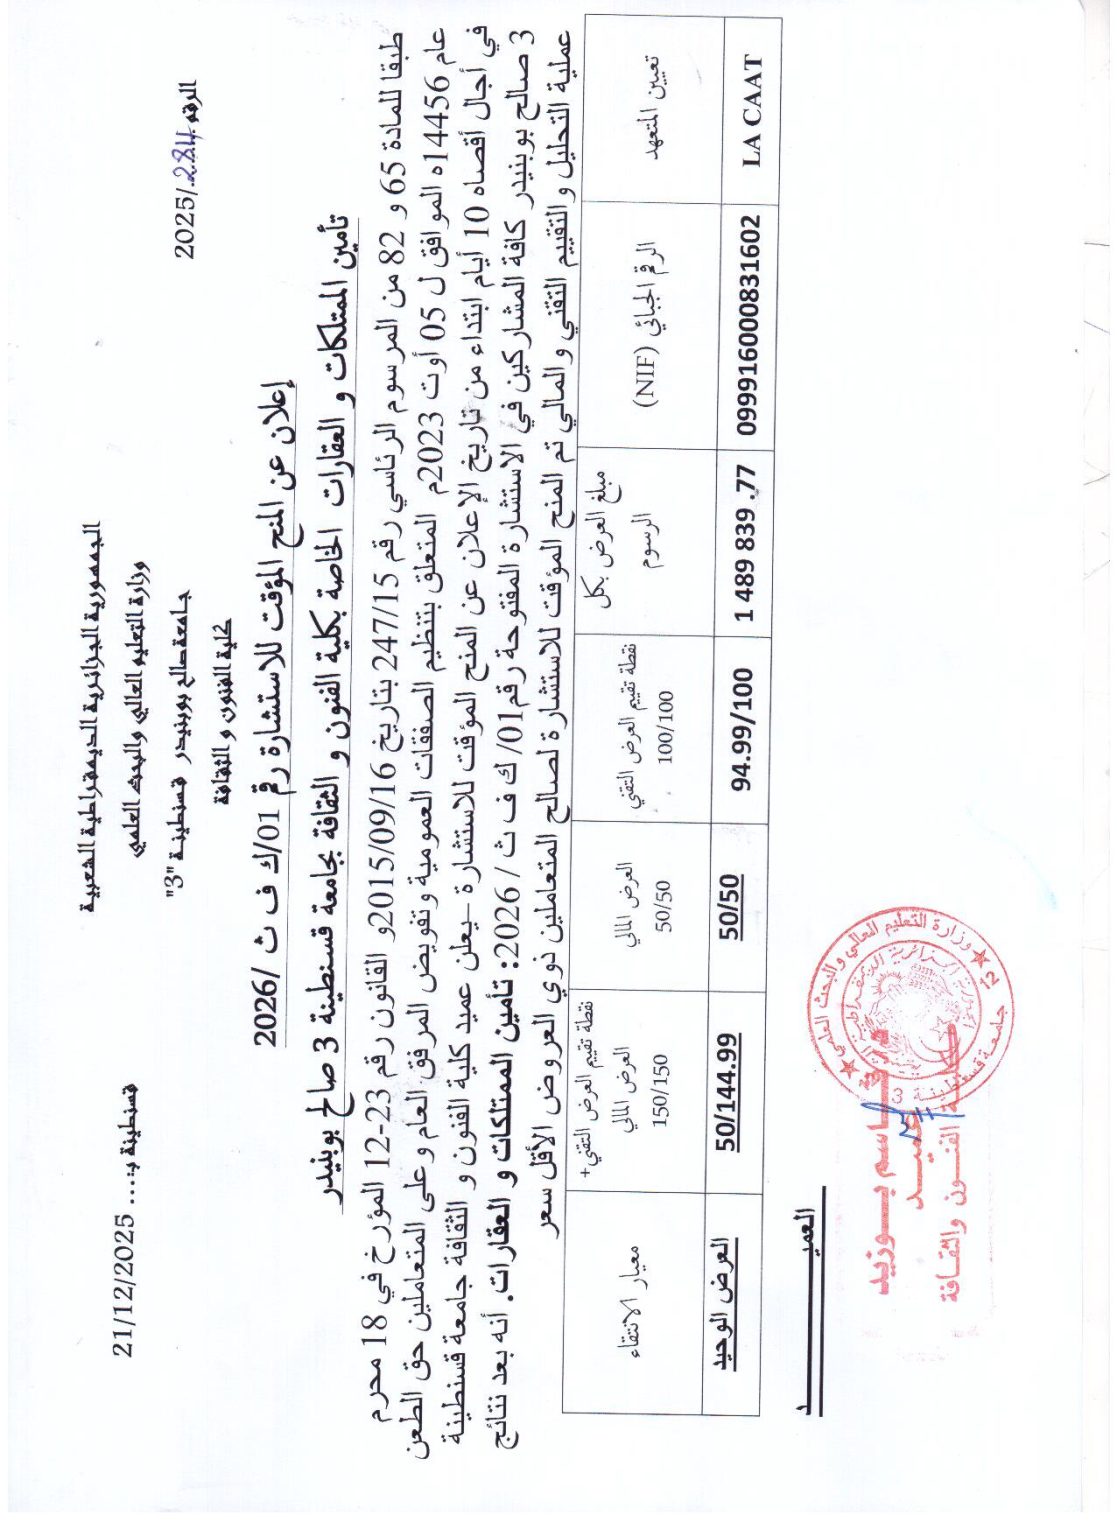 الجمهورية الجزائرية الديمقراطية الشعبية
وزارة التعليم العالي والبحث العلمي
جامعة صالح بوبنيدر قسنطينة "3"
كلية الفنون و الثقافة
الرقم 284/2025
قسنطينة بـ:... 21/12/2025
إعلان عن المنح المؤقت للاستشارة رقم 01/ك ف ث /2026
تأمين الممتلكات و العقارات الخاصة بكلية الفنون و الثقافة بجامعة قسنطينة 3 صالح بوبنيدر
طبقا للمادة 65 و 82 من المرسوم الرئاسي رقم 247/15 بتاريخ 2015/09/16و القانون رقم 23-12 المؤرخ في 18 محرم
عام 14456ه الموافق ل 05 أوت 2023م المتعلق بتنظيم الصفقات العمومية و تفويض المرفق العام و على المتعاملين حق الطعن
في أجال أقصاه 10 أيام ابتداء من تاريخ الإعلان عن المنح المؤقت للاستشارة – يعلن عميد كلية الفنون و الثقافة جامعة قسنطينة
3 صالح بوبنيدر كافة المشاركين في الاستشارة المفتوحة رقم01/ ك ف ث / 2026: تأمين الممتلكات و العقارات. أنه بعد نتائج
عملية التحليل و التقييم التقني و المالي تم المنح المؤقت للاستشارة لصالح المتعاملين ذوي العروض الأقل سعر
تعيين المتعهد
الرقم الجبائي (NIF)
مبلغ العرض بكل
الرسوم
نقطة تقييم العرض التقني
100/100
العرض المالي
50/50
نقطة تقييم العرض التقني+
العرض المالي
150/150
معيار الانتقاء
LA CAAT
099916000831602
1 489 839 .77
94.99/100
50/50
50/144.99
العرض الوحيد
العميـــــــــــد
وزارة التعليم العالي والبحث العلمي
جامعة قسنطينة 3
12
بـــوزيد
عميـــد
كلية الفنـــون والثقـافة